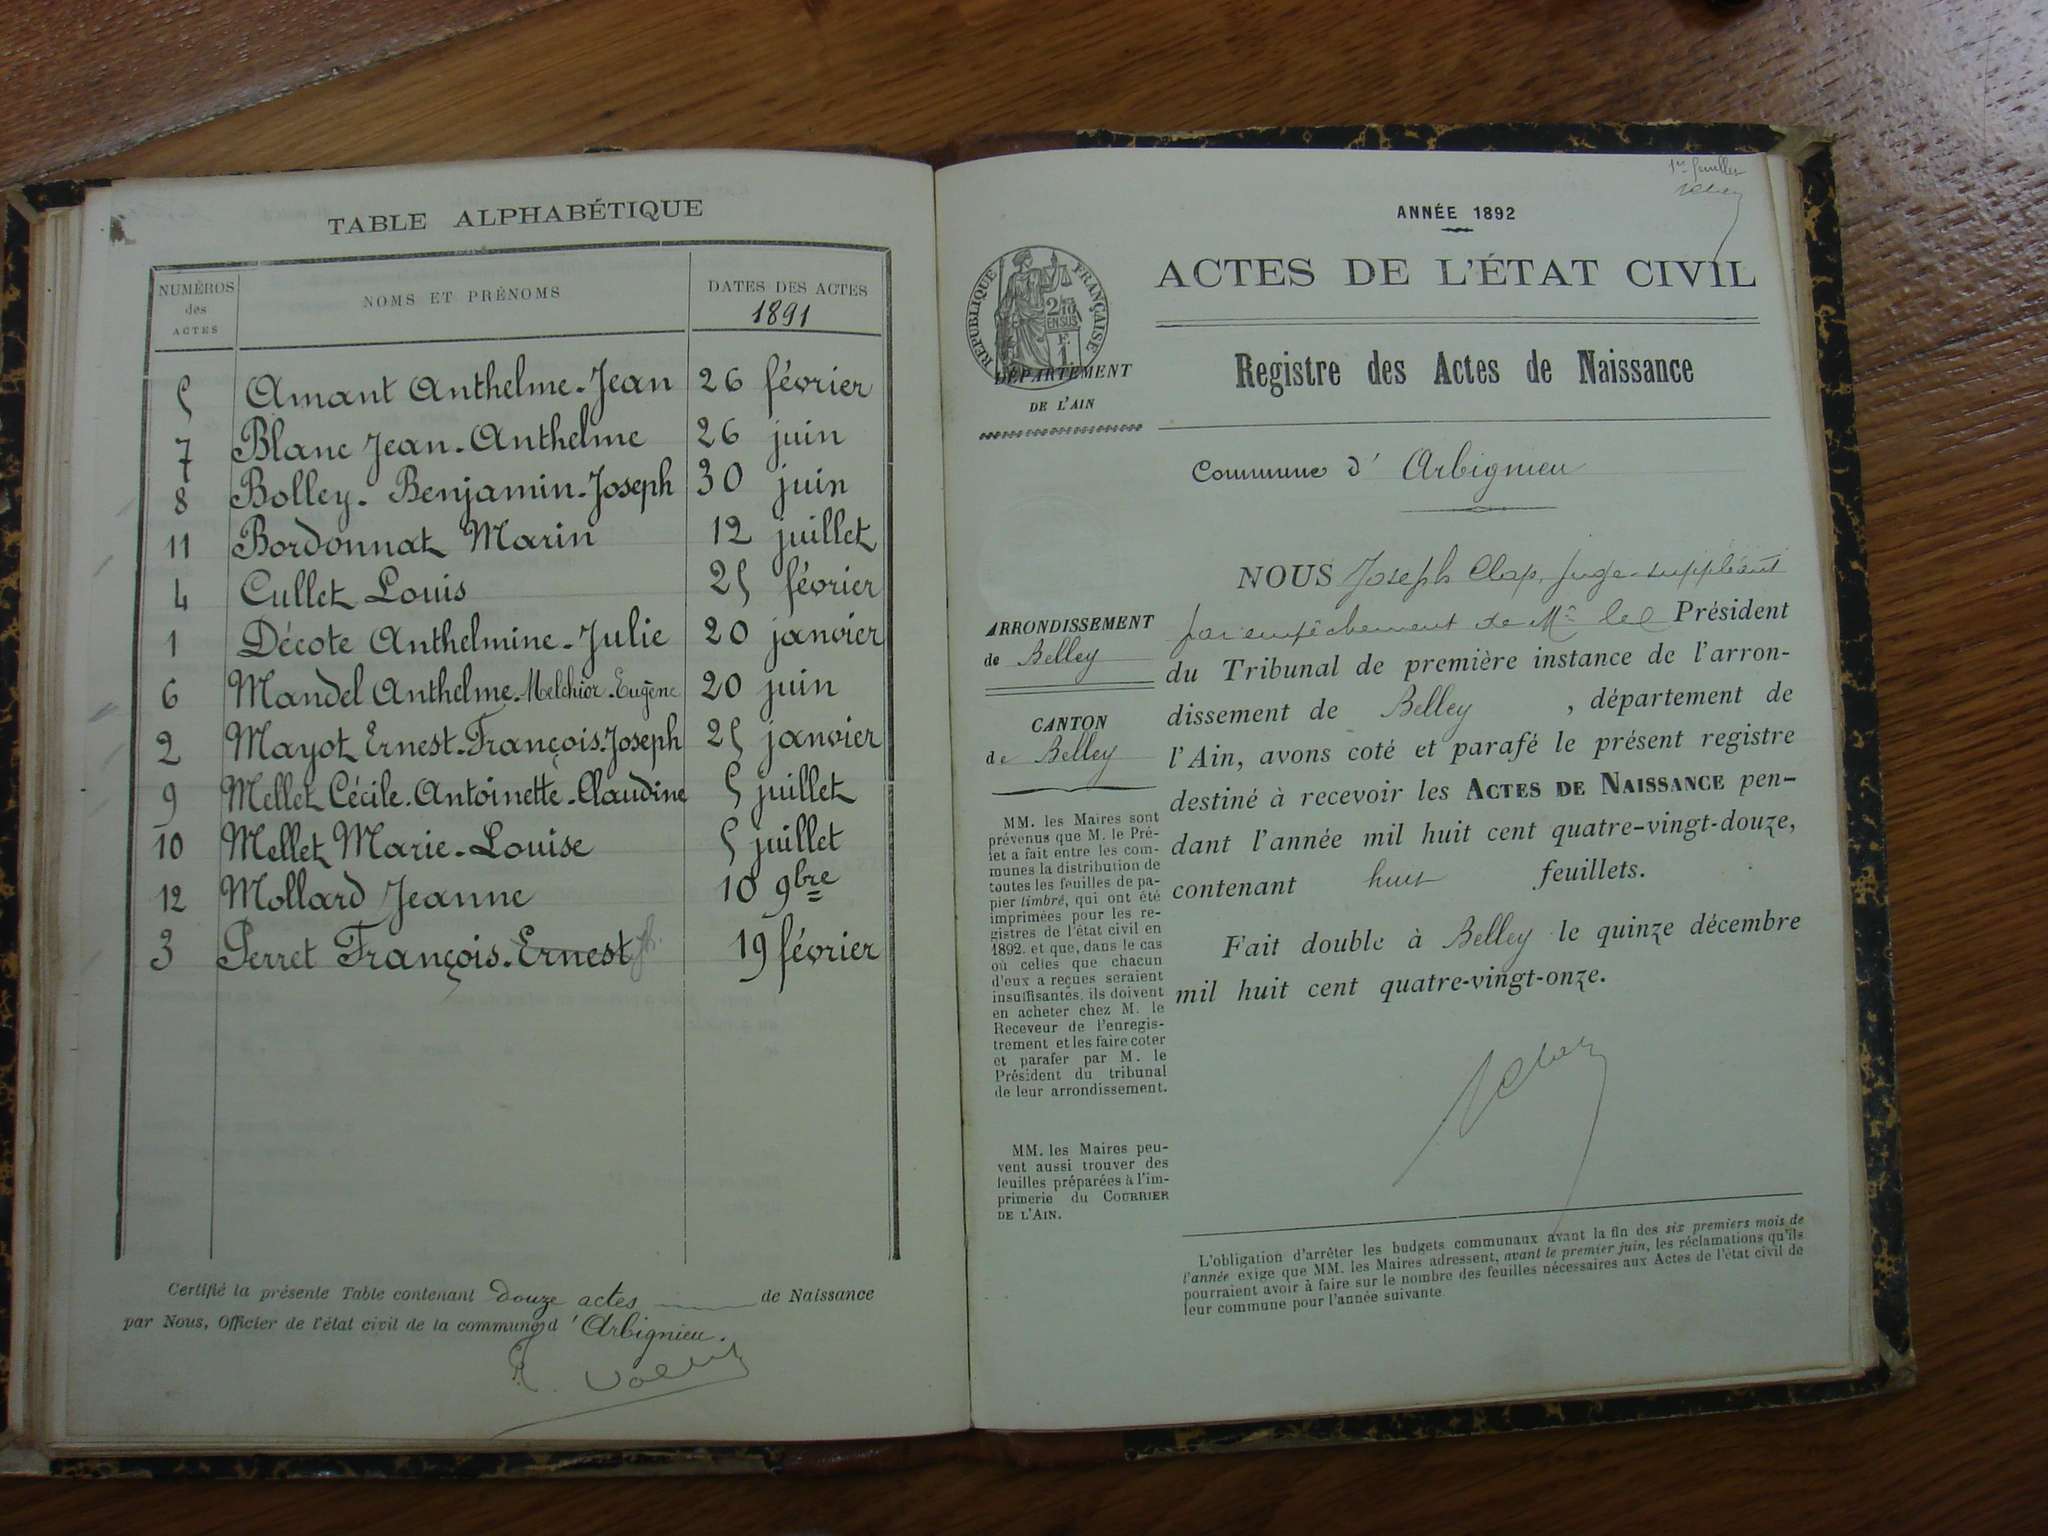 TABLE ALPHABÉTIQUE
NUMÉROS des ACTES
NOMS ET PRÉNOMS
DATES DES ACTES
1891
5 Amant Anthelme-Jean 26 février
7 Blanc Jean-Anthelme 26 juin
8 Bolley-Benjamin-Joseph 30 juin
11 Bordonnat Marin 12 juillet
4 Cullet Louis 25 février
1 Décote Anthelmine-Julie 20 janvier
6 Mandel Anthelme-Melchior-Eugène 20 juin
2 Mayot Ernest-François-Joseph 25 janvier
9 Mellet Cécile-Antoinette-Claudine 5 juillet
10 Mellet Marie-Louise 5 juillet
12 Mollard Jeanne 10 9bre
3 Perret François-Ernest 19 février
Certifié la présente Table contenant douze actes de Naissance
par Nous, Officier de l'état civil de la commune d'Arbignieu.
1er feuillet
ANNÉE 1892
ACTES DE L'ÉTAT CIVIL
RÉPUBLIQUE FRANÇAISE
2/10 EN SUS
F. 1
DÉPARTEMENT
DE L'AIN
Registre des Actes de Naissance
Commune d'Arbignieu
ARRONDISSEMENT
de Belley
CANTON
de Belley
MM. les Maires sont
prévenus que M. le Pré-
fet a fait entre les com-
munes la distribution de
toutes les feuilles de pa-
pier timbré, qui ont été
imprimées pour les re-
gistres de l'état civil en
1892. et que, dans le cas
où celles que chacun
d'eux a reçues seraient
insuffisantes, ils doivent
en acheter chez M. le
Receveur de l'enregis-
trement et les faire coter
et parafer par M. le
Président du tribunal
de leur arrondissement.
MM. les Maires peu-
vent aussi trouver des
feuilles préparées à l'im-
primerie du COURRIER
DE L'AIN.
NOUS Joseph Clap, juge-suppléant
par empêchement de Mr le Président
du Tribunal de première instance de l'arron-
dissement de Belley, département de
l'Ain, avons coté et parafé le présent registre
destiné à recevoir les ACTES DE NAISSANCE pen-
dant l'année mil huit cent quatre-vingt-douze,
contenant huit feuillets.
Fait double à Belley le quinze décembre
mil huit cent quatre-vingt-onze.
L'obligation d'arrêter les budgets communaux avant la fin des six premiers mois de
l'année exige que MM. les Maires adressent, avant le premier juin, les réclamations qu'ils
pourraient avoir à faire sur le nombre des feuilles nécessaires aux Actes de l'état civil de
leur commune pour l'année suivante